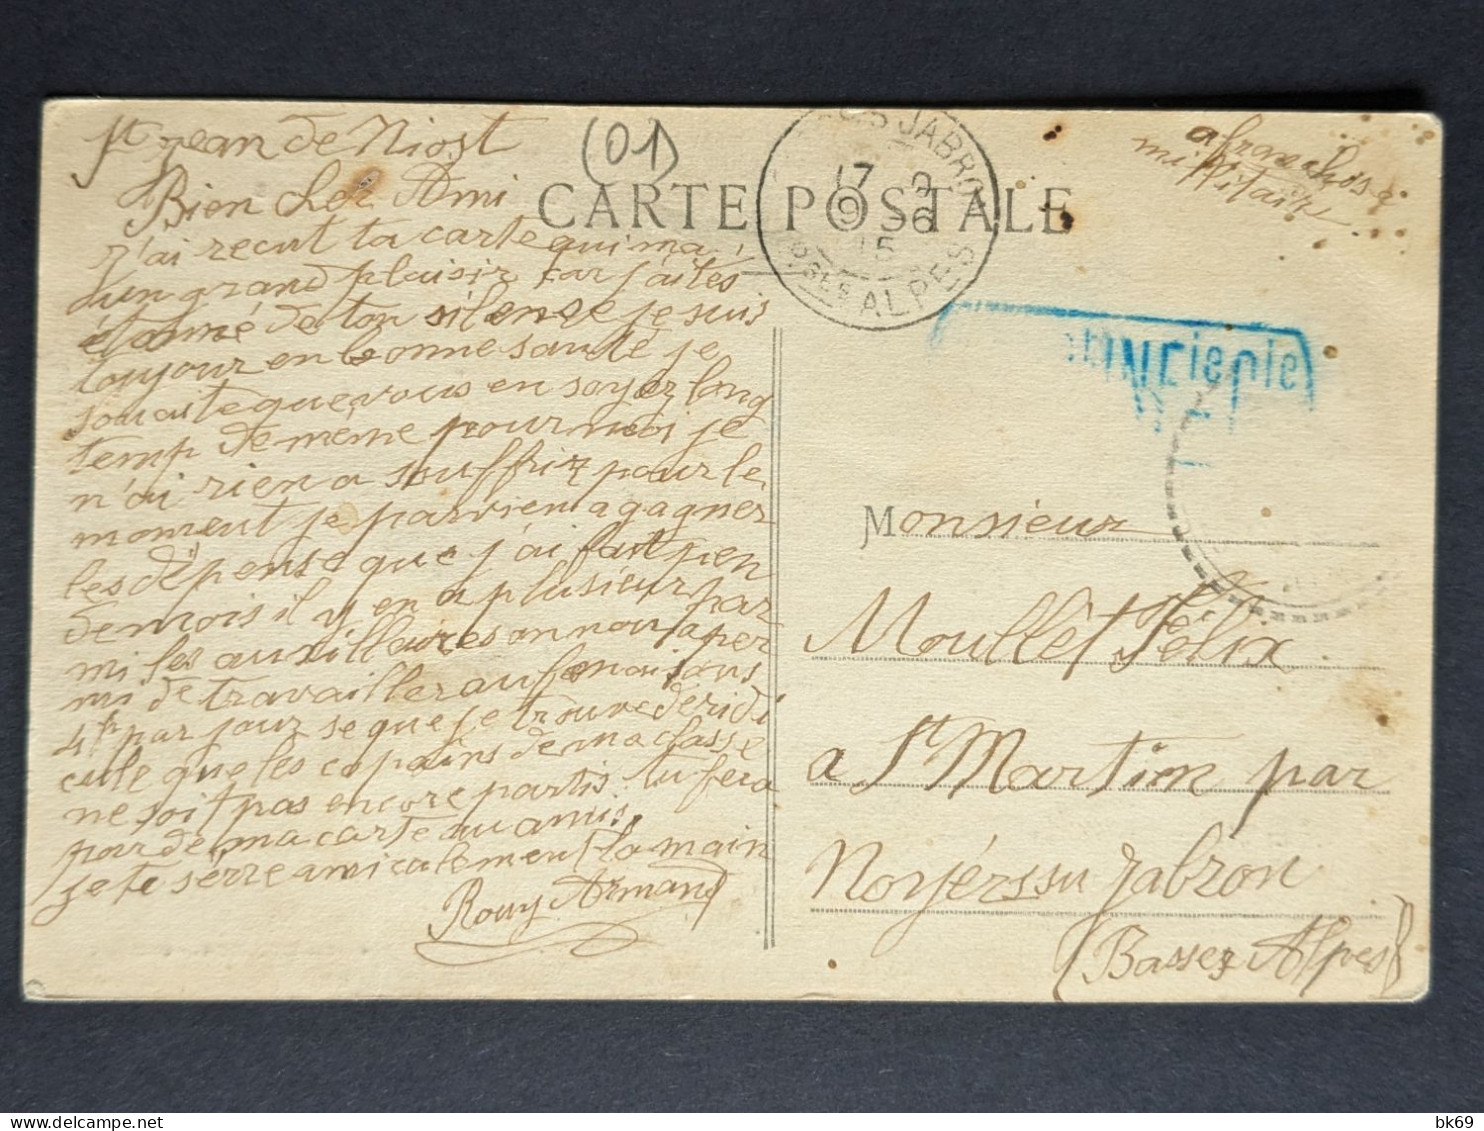 St jean de Niost
(01)
Bien cher Ami
j'ai recut ta carte qui ma
d'un grand plaisir car j'aités
étonné de ton silence je suis
toujour en bonne santé je
souaite que vous en soyez long
temp de même pour moi je
n'ai rien a souffriz pour le
moment je parvien a gagner
les dépense que j'ai fait pen
de mois il y en a plusieur par
mi les auxilleires on nou a per
mi de travailler au fenaisons
4 fr par jour se que je trouve de ridi
cule que les copains de ma classe
ne soit pas encore partis. tu fera
par de ma carte au amis.
je te sérre amicalement la main
Rouy Armand
CARTE POSTALE
JABRON
17 9
9 -6
15
Bses ALPES
militaire
Monsieur
Moullêt Félix
a St Martin par
Noyérs su Jabron
(Basses Alpes)
bk69